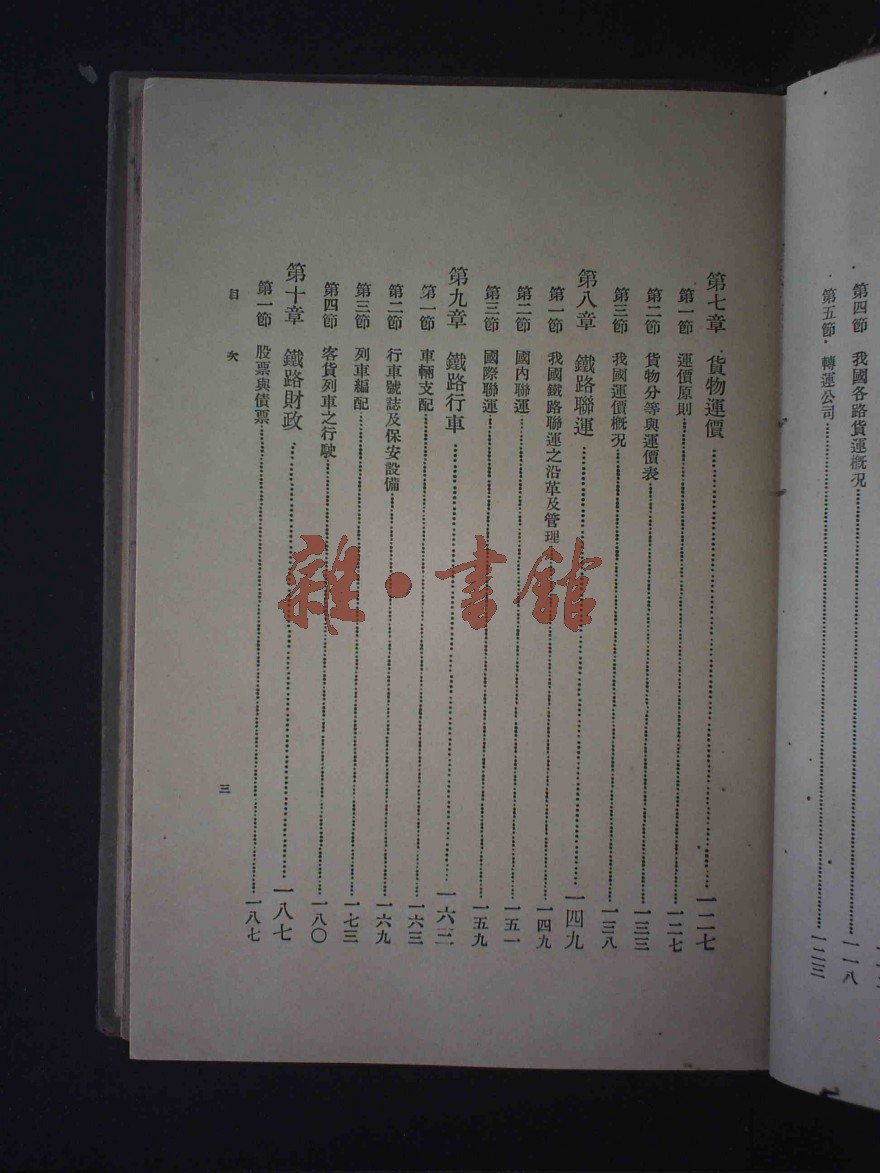 第四節 我國各路貨運概況……一一八
第五節 轉運公司……一二三
第七章 貨物運價……一二七
第一節 運價原則……一二七
第二節 貨物分等與運價表……一三三
第三節 我國運價概況……一三八
第八章 鐵路聯運……一四九
第一節 我國鐵路聯運之沿革及管理……一四九
第二節 國內聯運……一五一
第三節 國際聯運……一五九
第九章 鐵路行車……一六三
第一節 車輛支配……一六三
第二節 行車號誌及保安設備……一六九
第三節 列車編配……一七三
第四節 客貨列車之行駛……一八〇
第十章 鐵路財政……一八七
第一節 股票與債票……一八七
目次
三
雜·書館